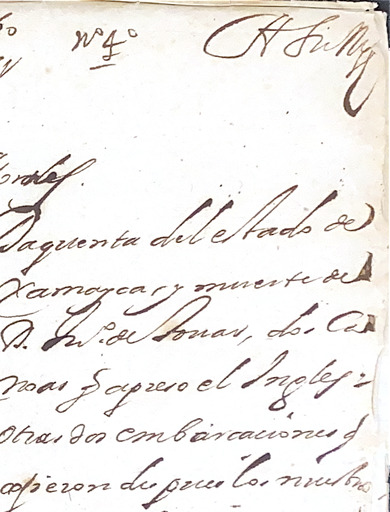 nº 4º
A Su Mgd
Da quenta del estado de
Xamayca, y muerte de
D. Juº. de Touar, dos Ca
noas q apreso el Ingles:
otras dos embarcaciones q
cojieron despues los nuestro